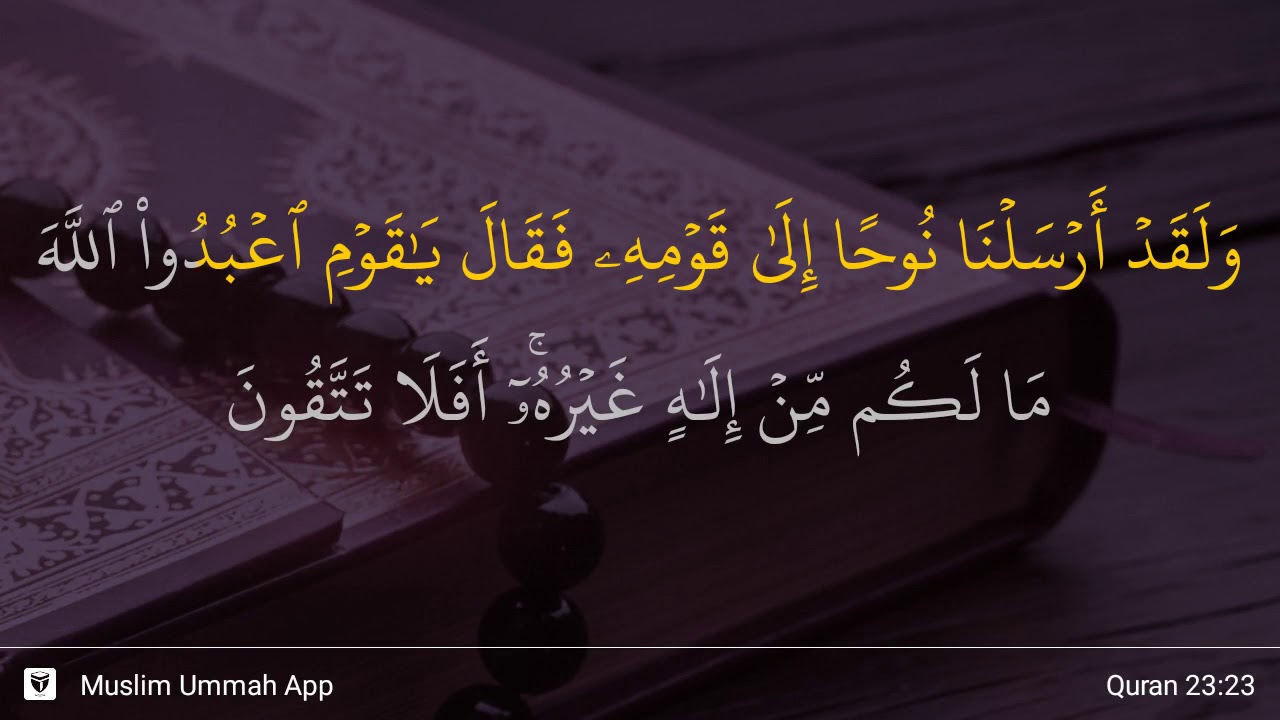 وَلَقَدۡ أَرۡسَلۡنَا نُوحًا إِلَىٰ قَوۡمِهِۦ فَقَالَ يَٰقَوۡمِ ٱعۡبُدُواْ ٱللَّهَ
مَا لَكُم مِّنۡ إِلَٰهٍ غَيۡرُهُۥٓۚ أَفَلَا تَتَّقُونَ
Muslim Ummah App
Quran 23:23